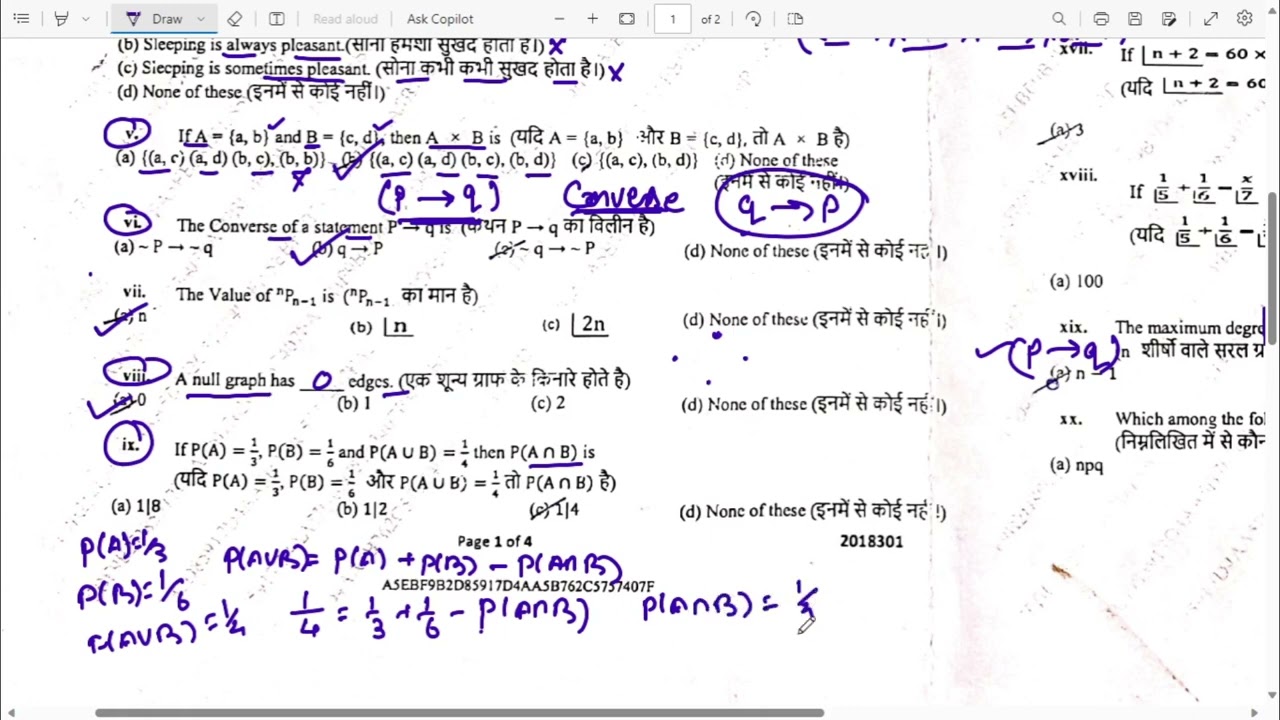 Draw
Read aloud
Ask Copilot
1 of 2
(b) Sleeping is always pleasant.(सोना हमेशा सुखद होता है।) x
(c) Sleeping is sometimes pleasant. (सोना कभी कभी सुखद होता है।) x
(d) None of these (इनमें से कोई नहीं।)
v. If A = {a, b} and B = {c, d}, then A × B is (यदि A = {a, b} और B = {c, d}, तो A × B है)
(a) {(a, c) (a, d) (b, c), (b, b)} (b) {(a, c) (a, d) (b, c), (b, d)} (c) {(a, c), (b, d)} (d) None of these
(इनमें से कोई नहीं।)
(p → q) Converse q → p
vi. The Converse of a statement P → q is (कथन P → q का विलीन है)
(a) ~ P → ~ q (b) q → P (c) ~ q → ~ P (d) None of these (इनमें से कोई नहीं।)
vii. The Value of ⁿPₙ₋₁ is (ⁿPₙ₋₁ का मान है)
(a) n (b) ⌊n (c) ⌊2n (d) None of these (इनमें से कोई नहीं।)
viii. A null graph has __0__ edges. (एक शून्य ग्राफ के किनारे होते है)
(a) 0 (b) 1 (c) 2 (d) None of these (इनमें से कोई नहीं।)
ix. If P(A) = 1/3, P(B) = 1/6 and P(A ∪ B) = 1/4 then P(A ∩ B) is
(यदि P(A) = 1/3, P(B) = 1/6 और P(A ∪ B) = 1/4 तो P(A ∩ B) है)
(a) 1|8 (b) 1|2 (c) 1|4 (d) None of these (इनमें से कोई नहीं।)
Page 1 of 4 2018301
A5EBF9B2D85917D4AA5B762C5757407F
P(A)=1/3
P(B)=1/6
P(A∪B)=1/4
P(A∪B)= P(A) + P(B) - P(A∩B)
1/4 = 1/3 + 1/6 - P(A∩B) P(A∩B) =
xvii.
If ⌊n + 2 = 60 ×
(यदि ⌊n + 2 = 60
(a) 3
xviii.
If 1/⌊5 + 1/⌊6 = x/⌊7
(यदि 1/⌊5 + 1/⌊6 =
(a) 100
xix. The maximum degre
(p → q) n शीर्षो वाले सरल ग्र
(a) n − 1
xx. Which among the fo
(निम्नलिखित में से कौन
(a) npq